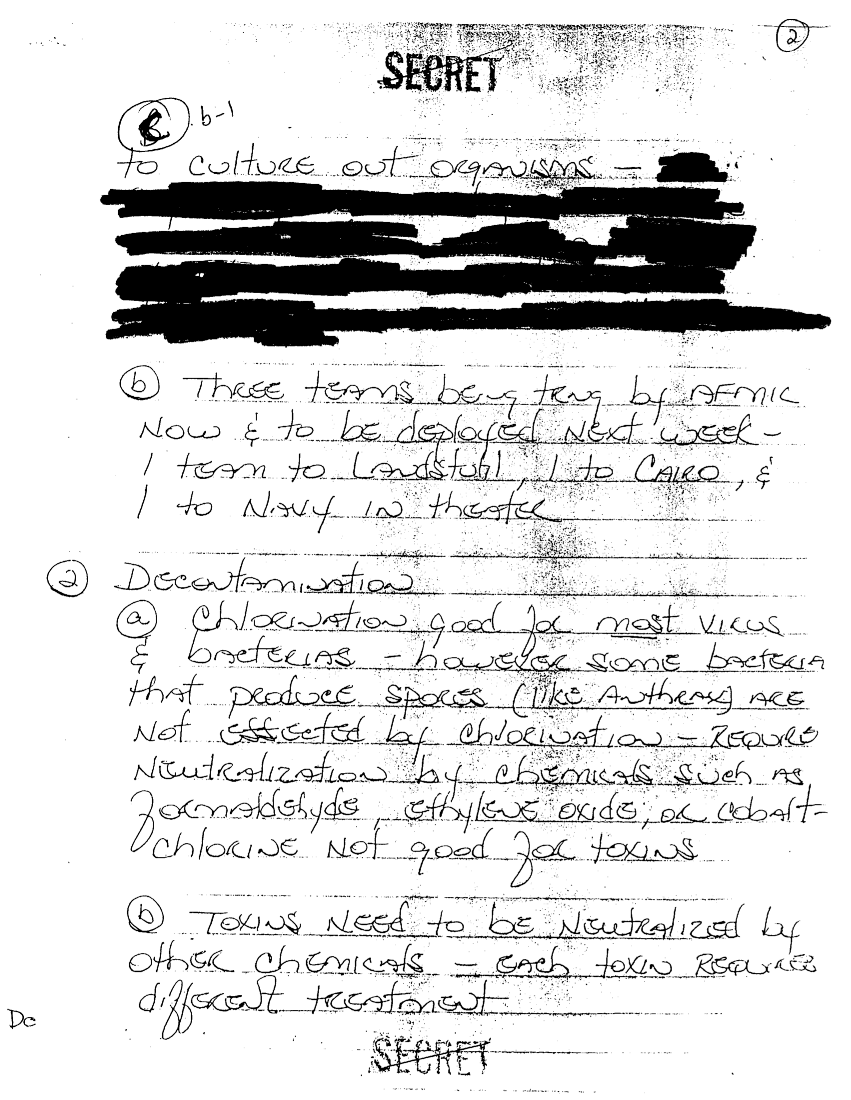 2
SECRET
b-1
to culture out organisms —
(b) Three teams being trng by AFMIC
now & to be deployed next week -
1 team to Landstuhl, 1 to Cairo, &
1 to Navy in theater
(2) Decontamination
(a) Chlorination good for most virus
& bacterias - however some bacteria
that produce spores (like Anthrax) are
not effected by chlorination - require
neutralization by chemicals such as
formaldehyde, ethylene oxide, or cobalt -
chlorine not good for toxins
(b) Toxins need to be neutralized by
other chemicals - each toxin requires
different treatment
Dc
SECRET